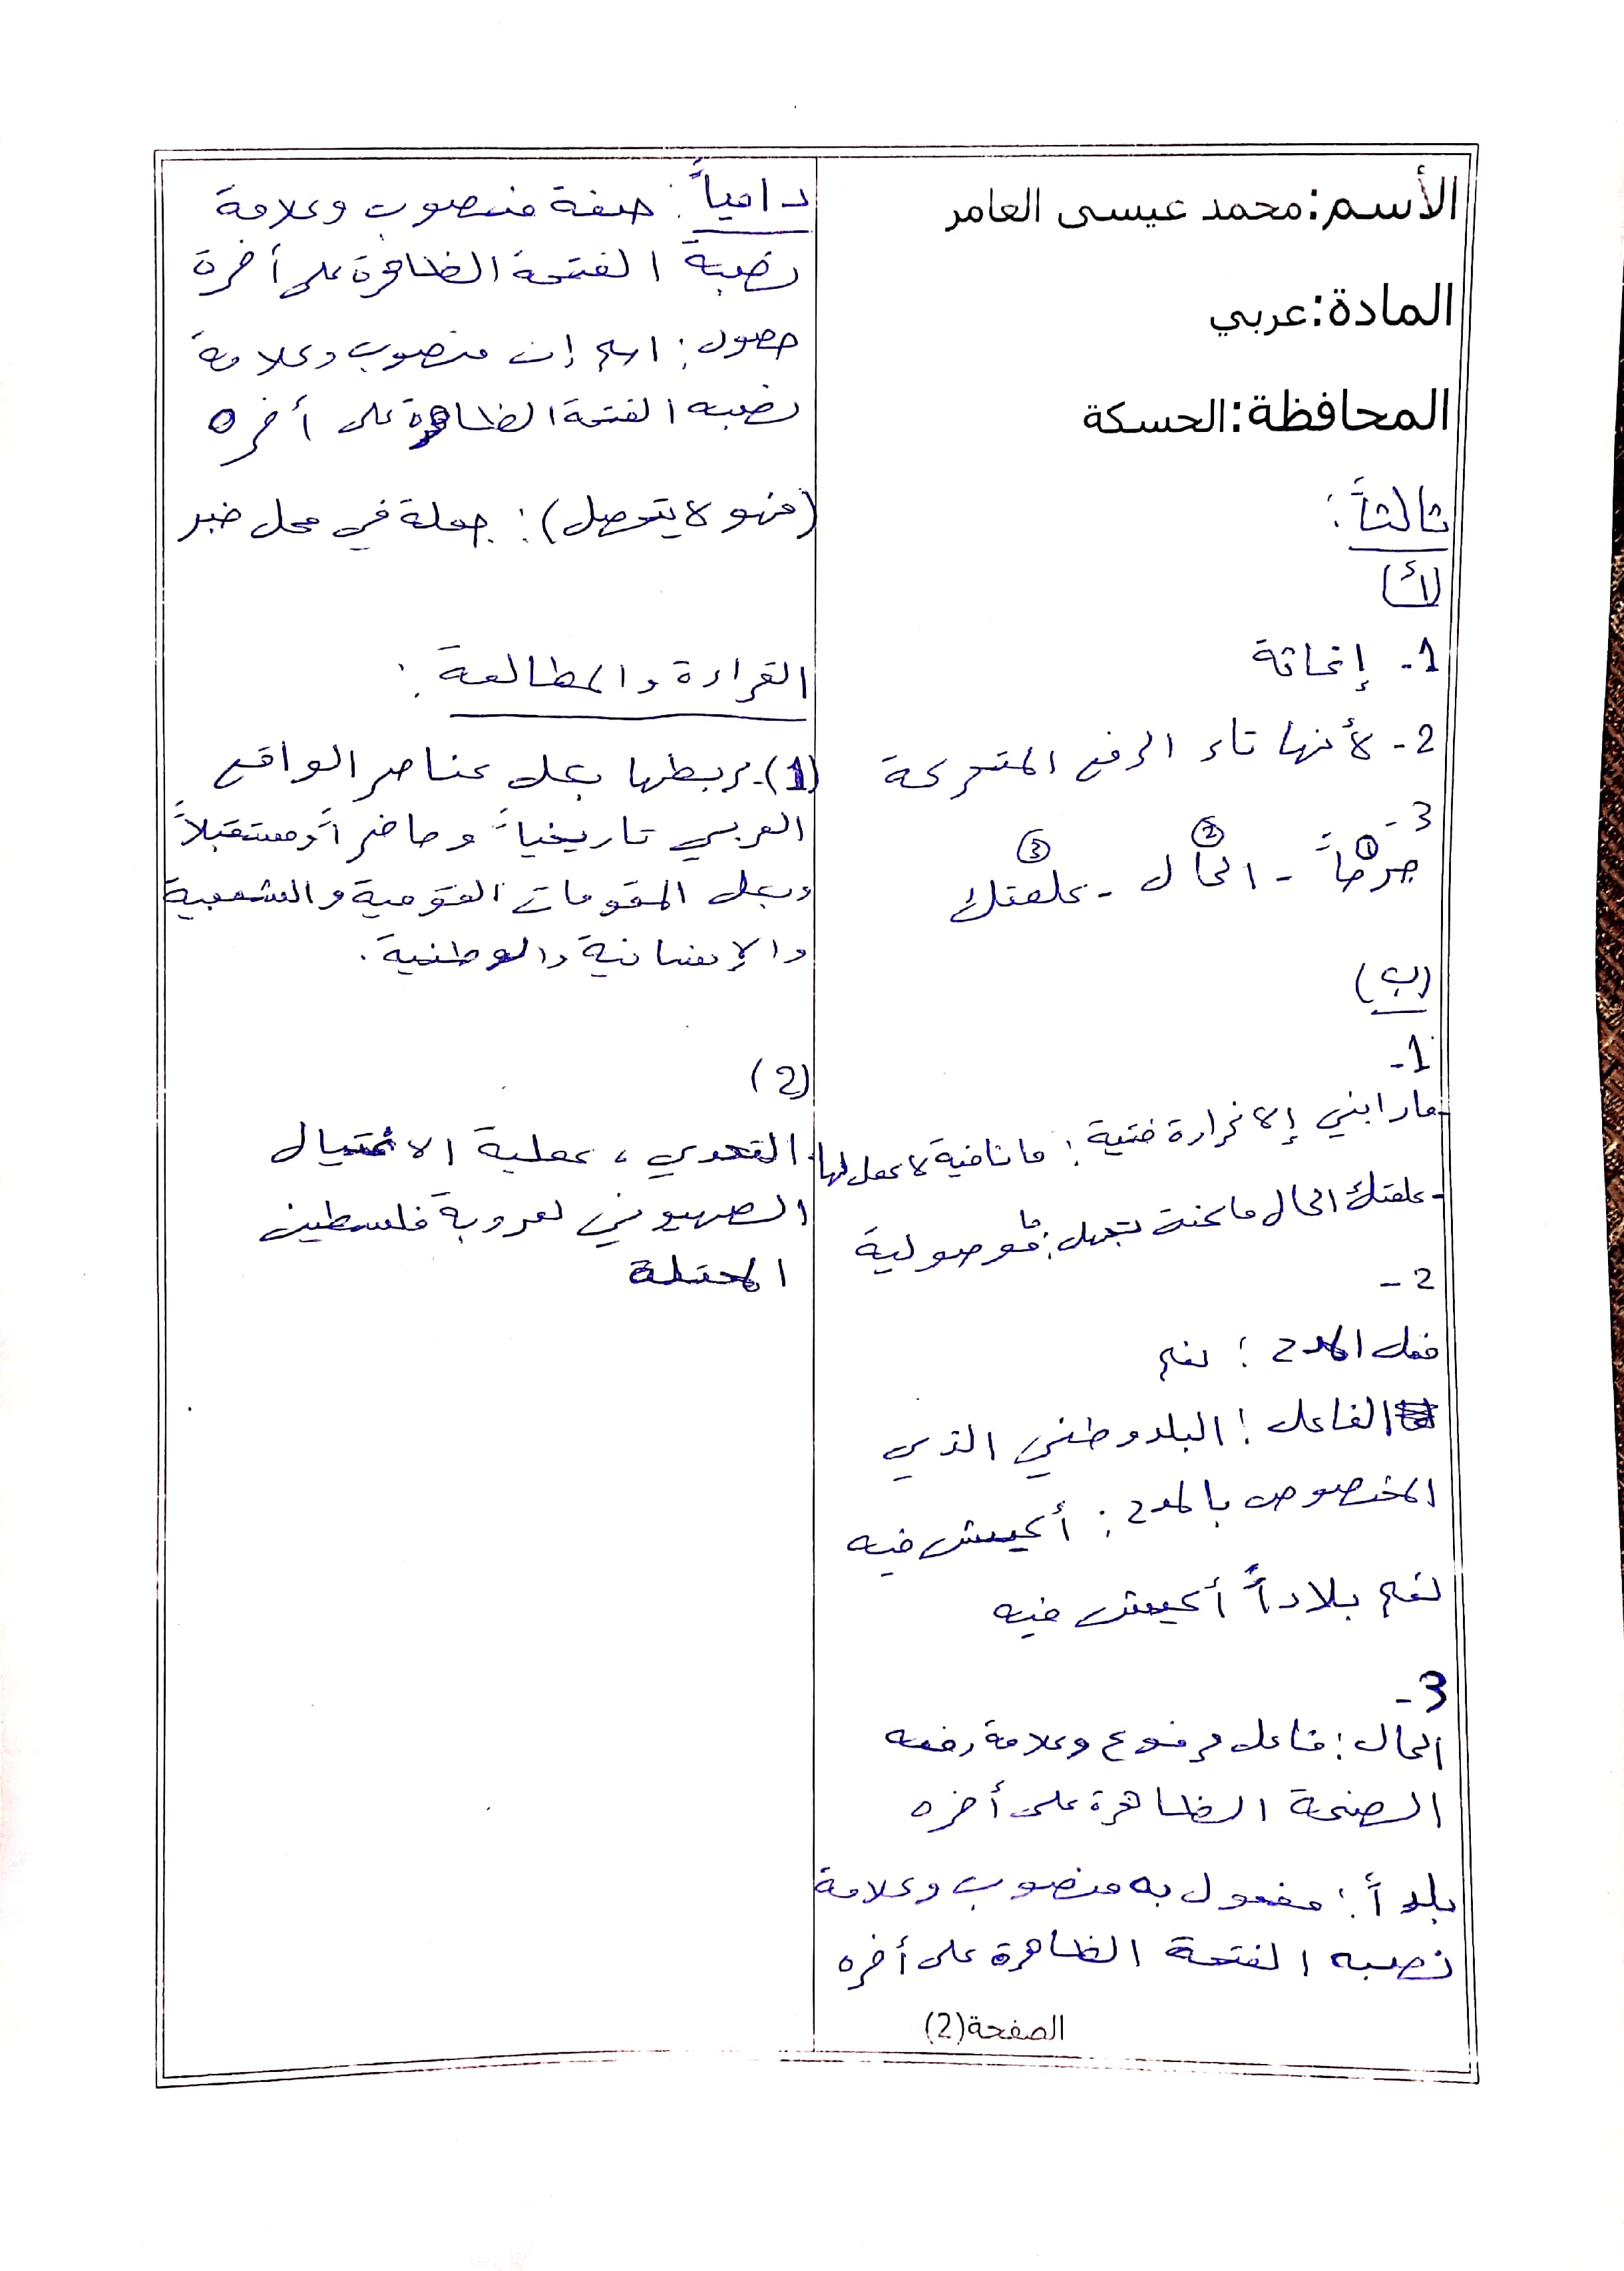 الأسم:محمد عيسى العامر
المادة:عربي
المحافظة:الحسكة
ثالثاً:
(أ)
1- إغاثة
2- لأنها تاء الرفع المتحركة
3-
جرحاً - الحال - علمتك
① ② ③
(ب)
1-
-ما رابني إلا غرارة فتية: ما نافية لا عمل لها
-علمتك الحال ما عنه تجهل: ما موصولية
2-
فعل المدح: نعم
الفاعل: البلد وطني الذي
المخصوص بالمدح: أعيش فيه
نعم بلاداً أعيش فيه
3-
الحال: فاعل مرفوع وعلامة رفعه
الضمة الظاهرة على أخره
بلداً: مفعول به منصوب وعلامة
نصبه الفتحة الظاهرة على أخره
الصفحة(2)
دامياً: صفة منصوب وعلامة
نصبة الفتحة الظاهرة على أخرة
حصول: اسم إن منصوب وعلامة
نصبه الفتحة الظاهرة على أخره
(فهو لا يتحصل): جملة في محل خبر
القراءة والمطالعة:
(1)- بربطها بكل عناصر الواقع
العربي تاريخياً وحاضراً ومستقبلاً
وبكل المقومات القومية والشعبية
والإنسانية والوطنية.
(2)
التحدي، عملية الاغتيال
الصهيوني لعروبة فلسطين
المحتلة